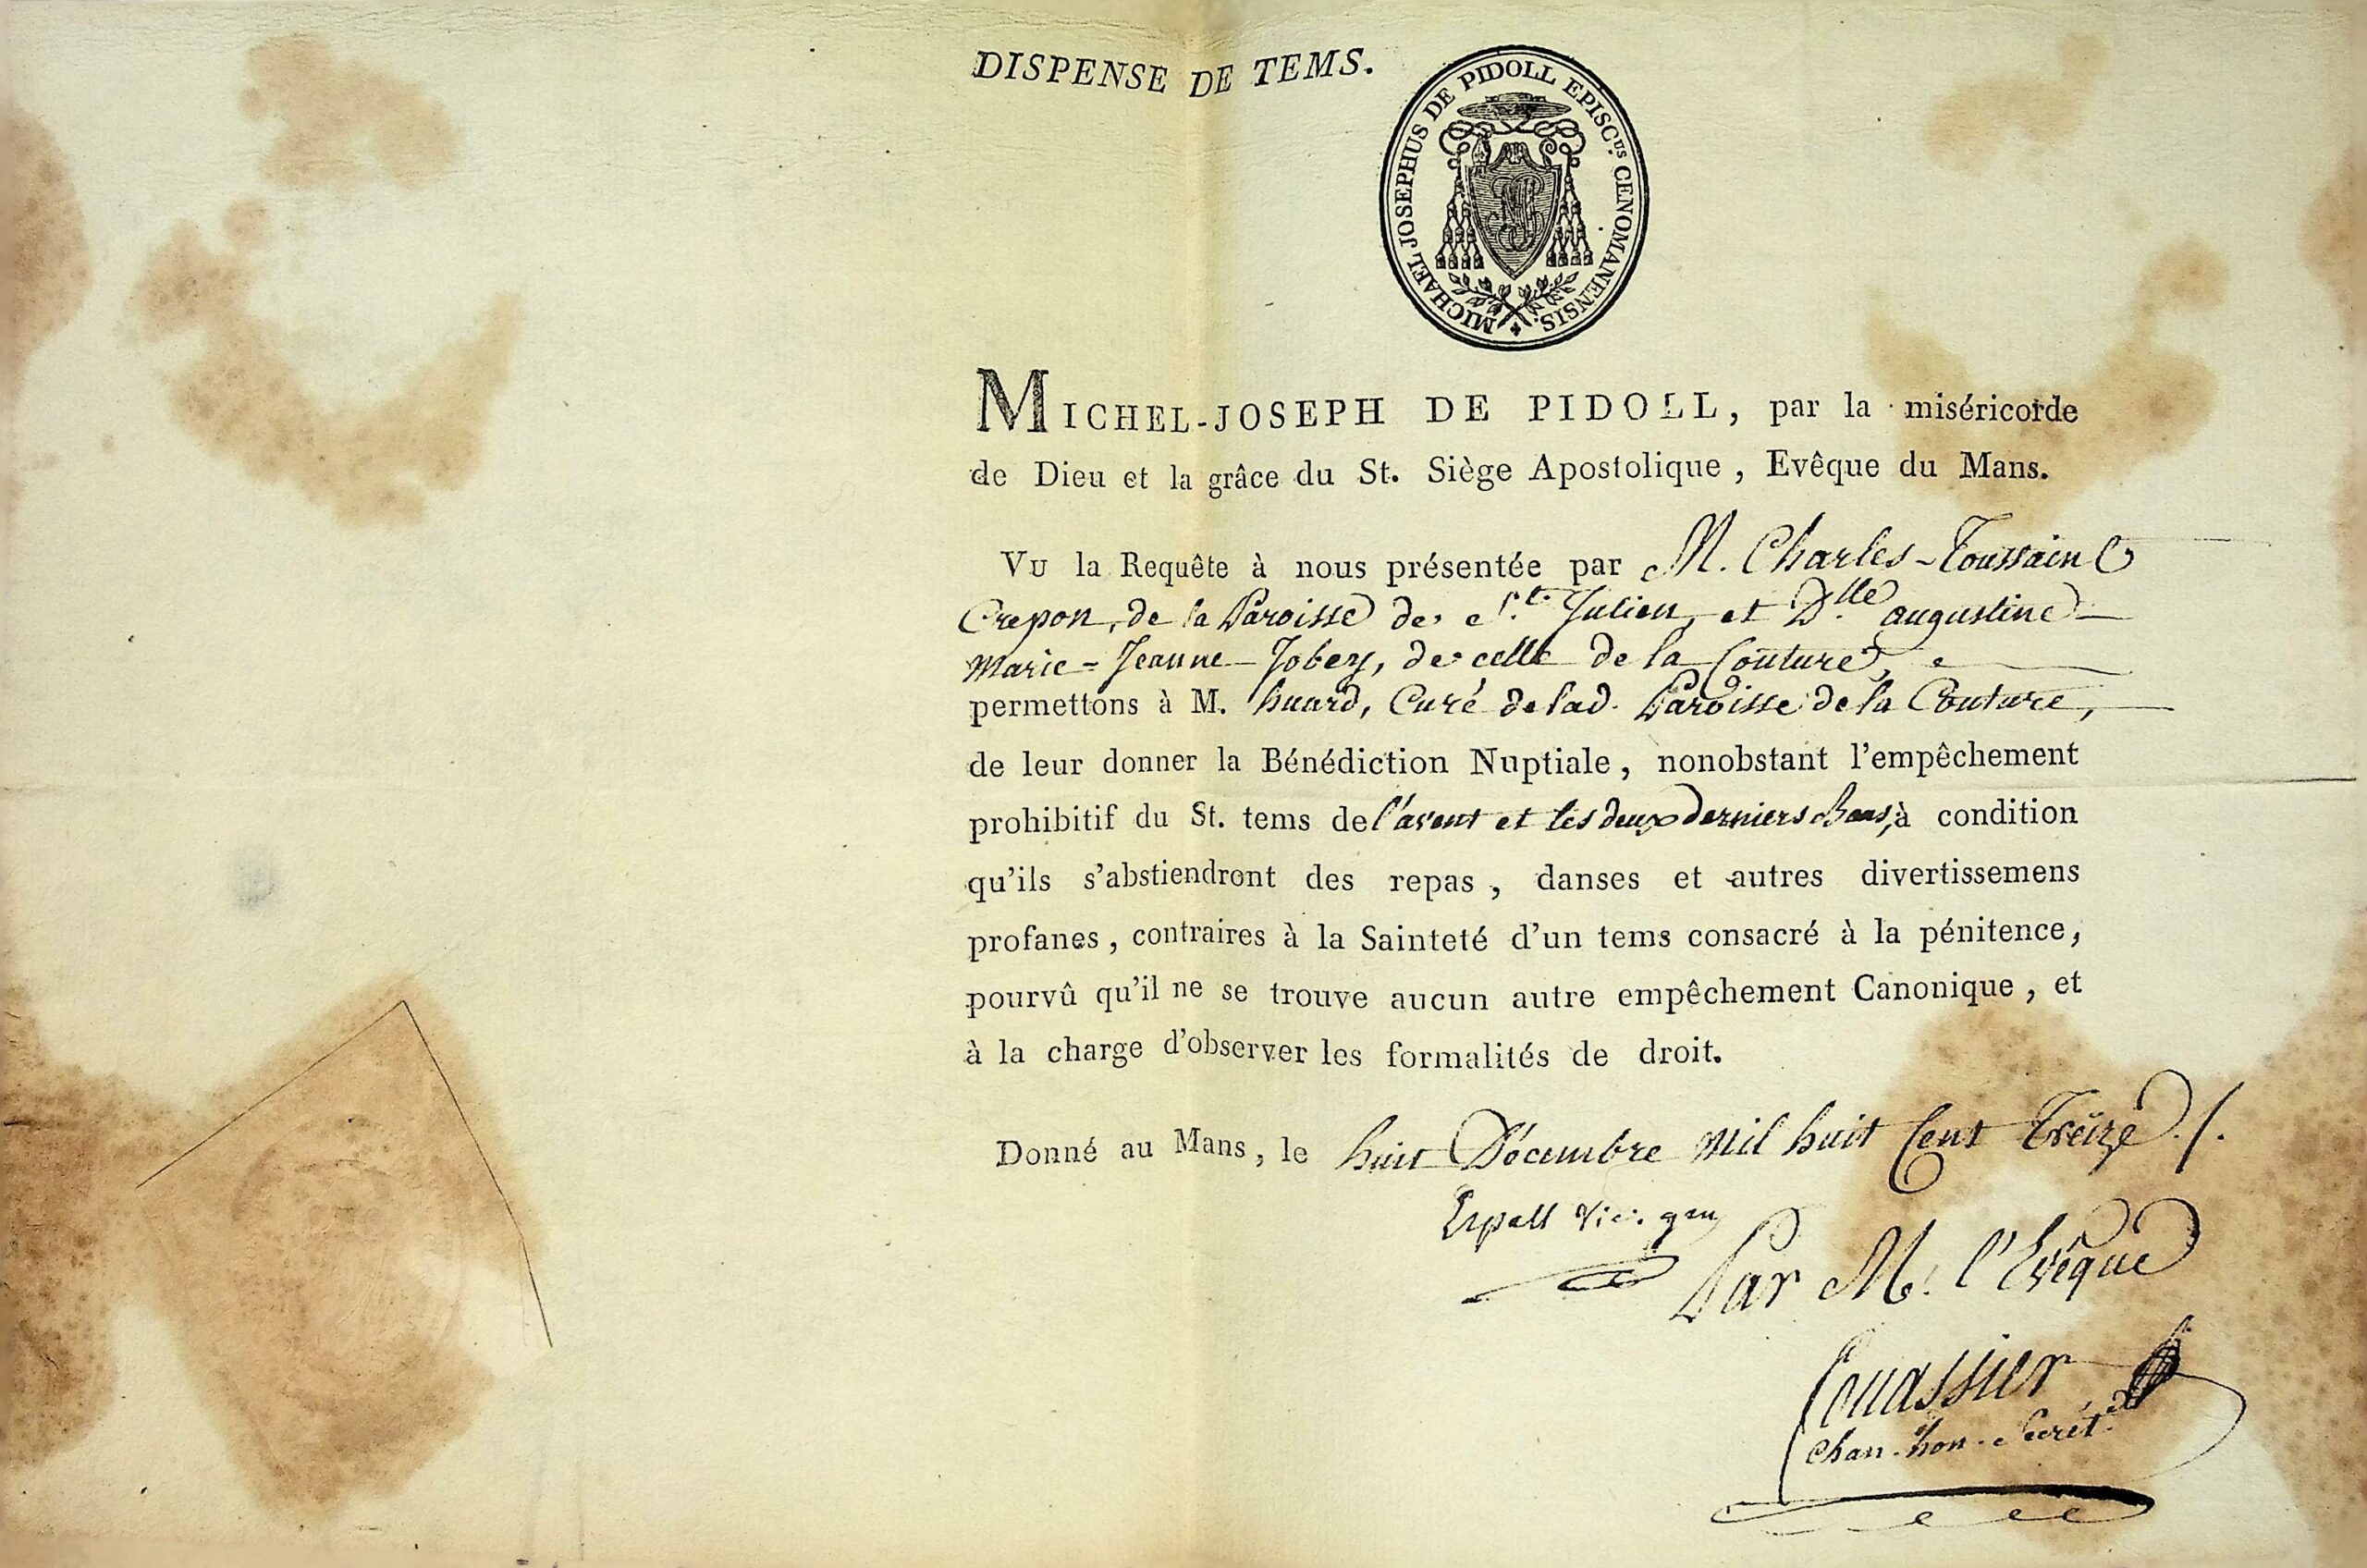 DISPENSE DE TEMS.
MICHAEL JOSEPHUS DE PIDOLL EPISC.US CENOMANENSIS.
MICHEL-JOSEPH DE PIDOLL, par la miséricorde
de Dieu et la grâce du St. Siège Apostolique, Evêque du Mans.
VU la Requête à nous présentée par M. Charles-Toussaint
Crepon, de la Paroisse de St. Julien, et Dlle augustine
Marie-Jeanne Jobey, de celle de la Couture,
permettons à M. huard, Curé de lad. Paroisse de la Couture,
de leur donner la Bénédiction Nuptiale, nonobstant l'empêchement
prohibitif du St. tems de l'avent et les deux derniers bans, à condition
qu'ils s'abstiendront des repas, danses et autres divertissemens
profanes, contraires à la Sainteté d'un tems consacré à la pénitence,
pourvû qu'il ne se trouve aucun autre empêchement Canonique, et
à la charge d'observer les formalités de droit.
Donné au Mans, le huit Décembre mil huit Cent Treize ./.
vic. gen
Par M. l'Evêque
Couassier
Chan. hon. Secrét.